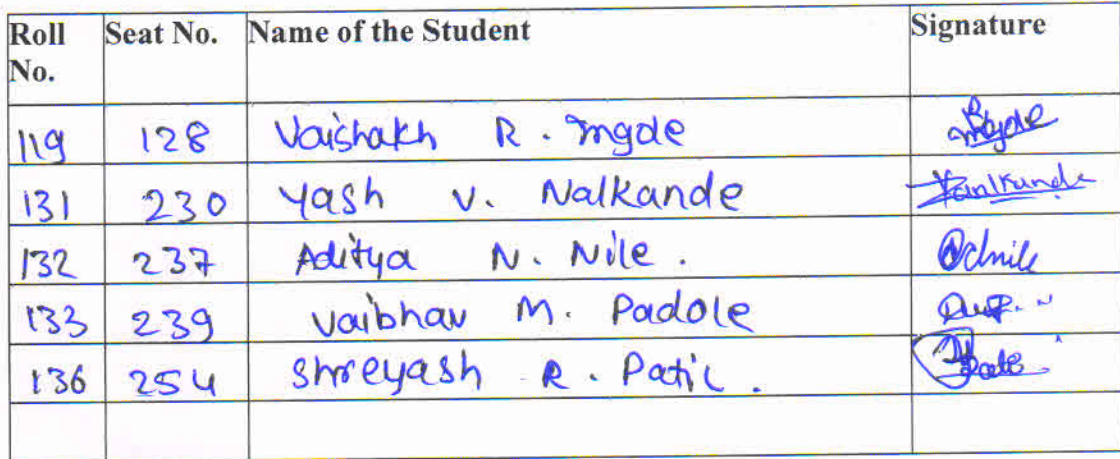 Roll No. Seat No. Name of the Student Signature
119 128 Vaishakh R. Ingde
131 230 Yash V. Nalkande
132 237 Aditya N. Nile.
133 239 Vaibhav M. Padole
136 254 Shreyash R. Patil.